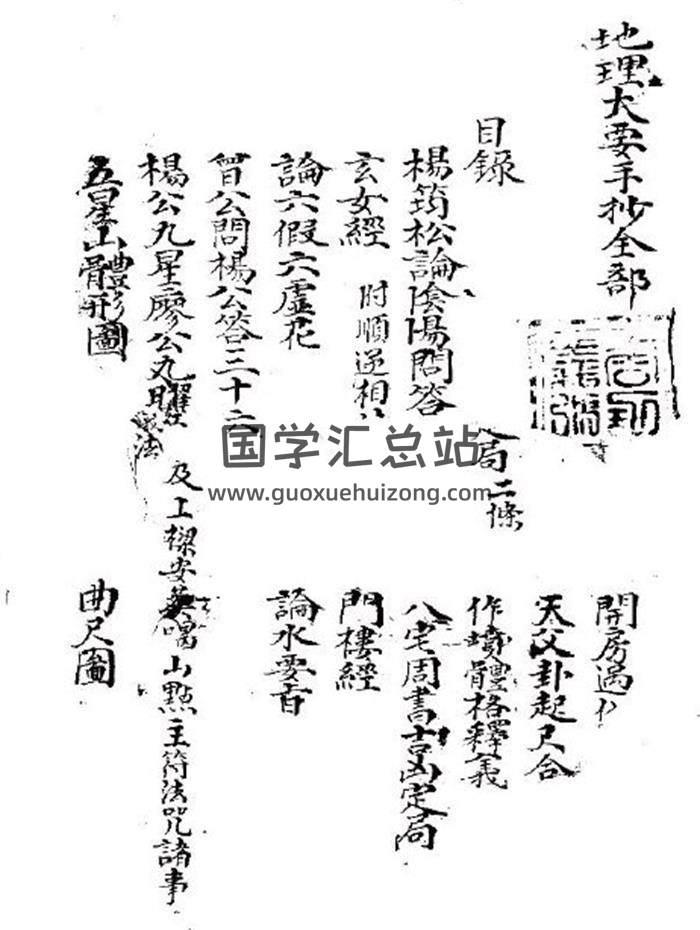 地理大要手抄全部
目錄
楊筠松論陰陽問答
局二條
玄女經 附順逆相
論六假六虛花
曾公問楊公答三十六
楊公九星廖公九曜 法 及上樑安 喝山點主符法咒諸事
五星山體形圖
開房過
天父卦起尺合
作墳體格釋義
八宅周書吉凶定局
門樓經
論水要旨
曲尺圖
国学汇总站
www.guoxuehuizong.com